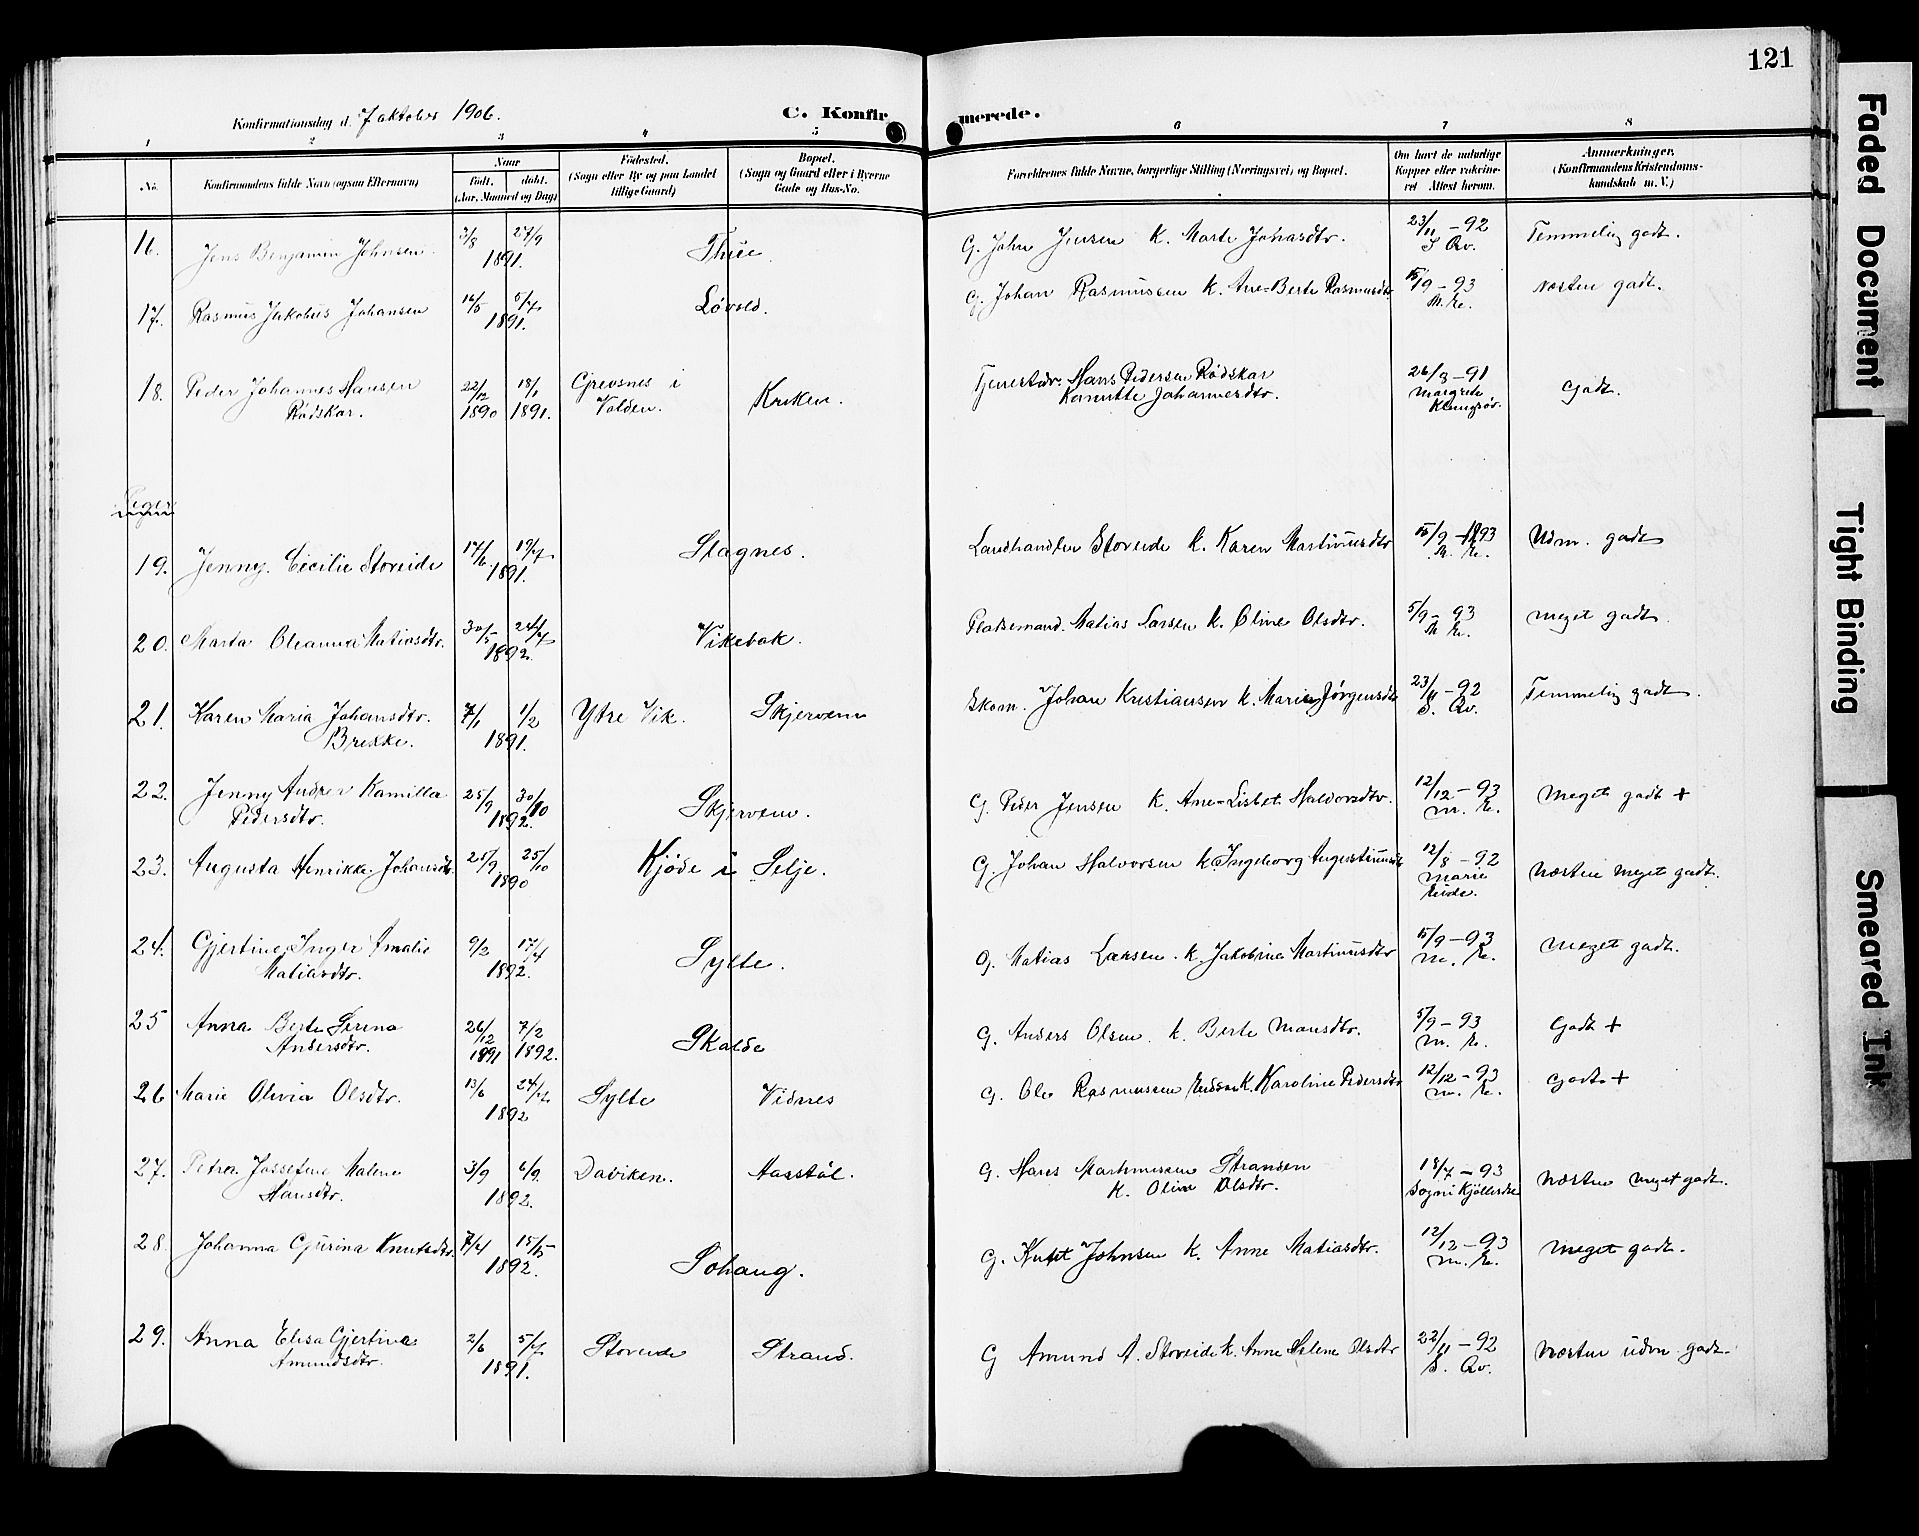 121
Konfirmationsdag d. 7 oktober 1906.
C. Konfirmerede.
1 2 3 4 5 6 7 8
No.
Konfirmandens fulde Navn (ogsaa Efternavn)
Naar
født. døbt.
(Aar, Maaned og Dag)
Fødested.
(Sogn eller By og paa Landet
tillige Gaard)
Bopæl.
(Sogn og Gaard eller i Byerne
Gade og Hus-No.
Forældrenes fulde Navne, borgerlige Stilling (Næringsvei) og Bopæl.
Om havt de naturlige
Kopper eller vakcineret
Attest herom.
Anmærkninger.
(Konfirmandens Kristendomskundskab
m. V.)
16. Jens Benjamin Johnsen 3/8 27/9 Thue G. John Jensen K. Marte Jonasdtr. 23/11 - 92 Temmelig godt.
1891. S. Qv.
17. Rasmus Jakobus Johansen 16/5 5/7 Løvold. G. Johan Rasmussen K. Ane-Berte Rasmusdtr 15/9 - 93 næsten godt.
1891. M. Ee.
18. Peder Johannes Hansen 22/12 18/1 Grevsnes i Kriken. Tjenestedr. Hans Pedersen Rødskar 26/8 - 91 Godt.
Rødskar. 1890 1891. Volden. Kanutte Johannesdtr. Margrete
Klungsør.
Piger
19. Jenny Cecilie Storeide 14/6 19/7 Slagnes. Landhandler Storeide K. Karen Martinusdtr 15/9 - 1893 Udm. godt
1891. M. Ee.
20. Marta Oleanna Matiasdtr. 30/5 24/7 Vikebak. Pladsemand. Matias Larsen K. Oline Olsdtr. 5/9 - 93 meget godt.
1892. M. Ee.
21. Karen Maria Johansdtr. 7/1 1/2 Ytre Vik. Skjervem Skom. Johan Kristiansen K. Marie Jørgensdtr 23/11 - 92 Temmelig godt.
Brekke. 1891. S. Qv.
22. Jenny Andrea Kamilla 25/9 30/10 Skjervem. G. Peder Jensen K. Ane-Lisbet Haldorsdtr. 12/12 - 93 Meget godt +
Pedersdtr. 1892. M. Ee.
23. Augusta Henrikke Johansdtr. 25/9 25/10 Kjøde i Selje. G. Johan Halvorsen K. Ingeborg Augustinusdtr 12/8 - 92 Næsten meget godt.
1890 Marie
Eide.
24. Gjertine Inger Amalie 9/2 17/4 Sylte. G. Matias Larsen. K. Jakobine Martinusdtr 15/9 - 93 Meget godt.
Matiasdtr. 1892. M. Ee.
25 Anna Berte Serina 26/12 7/2 Skalde G. Anders Olsen. K. Berte Monsdtr. 5/9 - 93 Godt +
Andersdtr. 1891 1892. M. Ee.
26 Marie Olivia Olsdtr. 13/6 24/7 Sylte Vidnes G. Ole Rasmussen K. Karoline Pedersdtr 12/12 - 93 Godt +
1892 M. Ee.
27. Petra Jossefine Malene 3/9 6/9. Daviken. Aasstøl. G. Hans Martinussen Stransen 18/7 - 93 Næsten meget godt.
Hansdtr. 1892. K. Oline Olsdtr.
28. Johanna Gjurina Knutsdtr. 7/4 15/5 Sohaug. G. Knut Johnsen K. Anne Matiasdtr. 12/12 - 93 Meget godt.
1892. M. Ee.
29. Anna Elisa Gjertina 2/6 5/7 Storeide Strand. G Amund A. Storeide K. Anne Malene Olsdtr 22/11 - 92 Næsten udm godt.
Amundsdtr. 1891. S. Qv.
Faded Document
Tight Binding
Smeared Ink